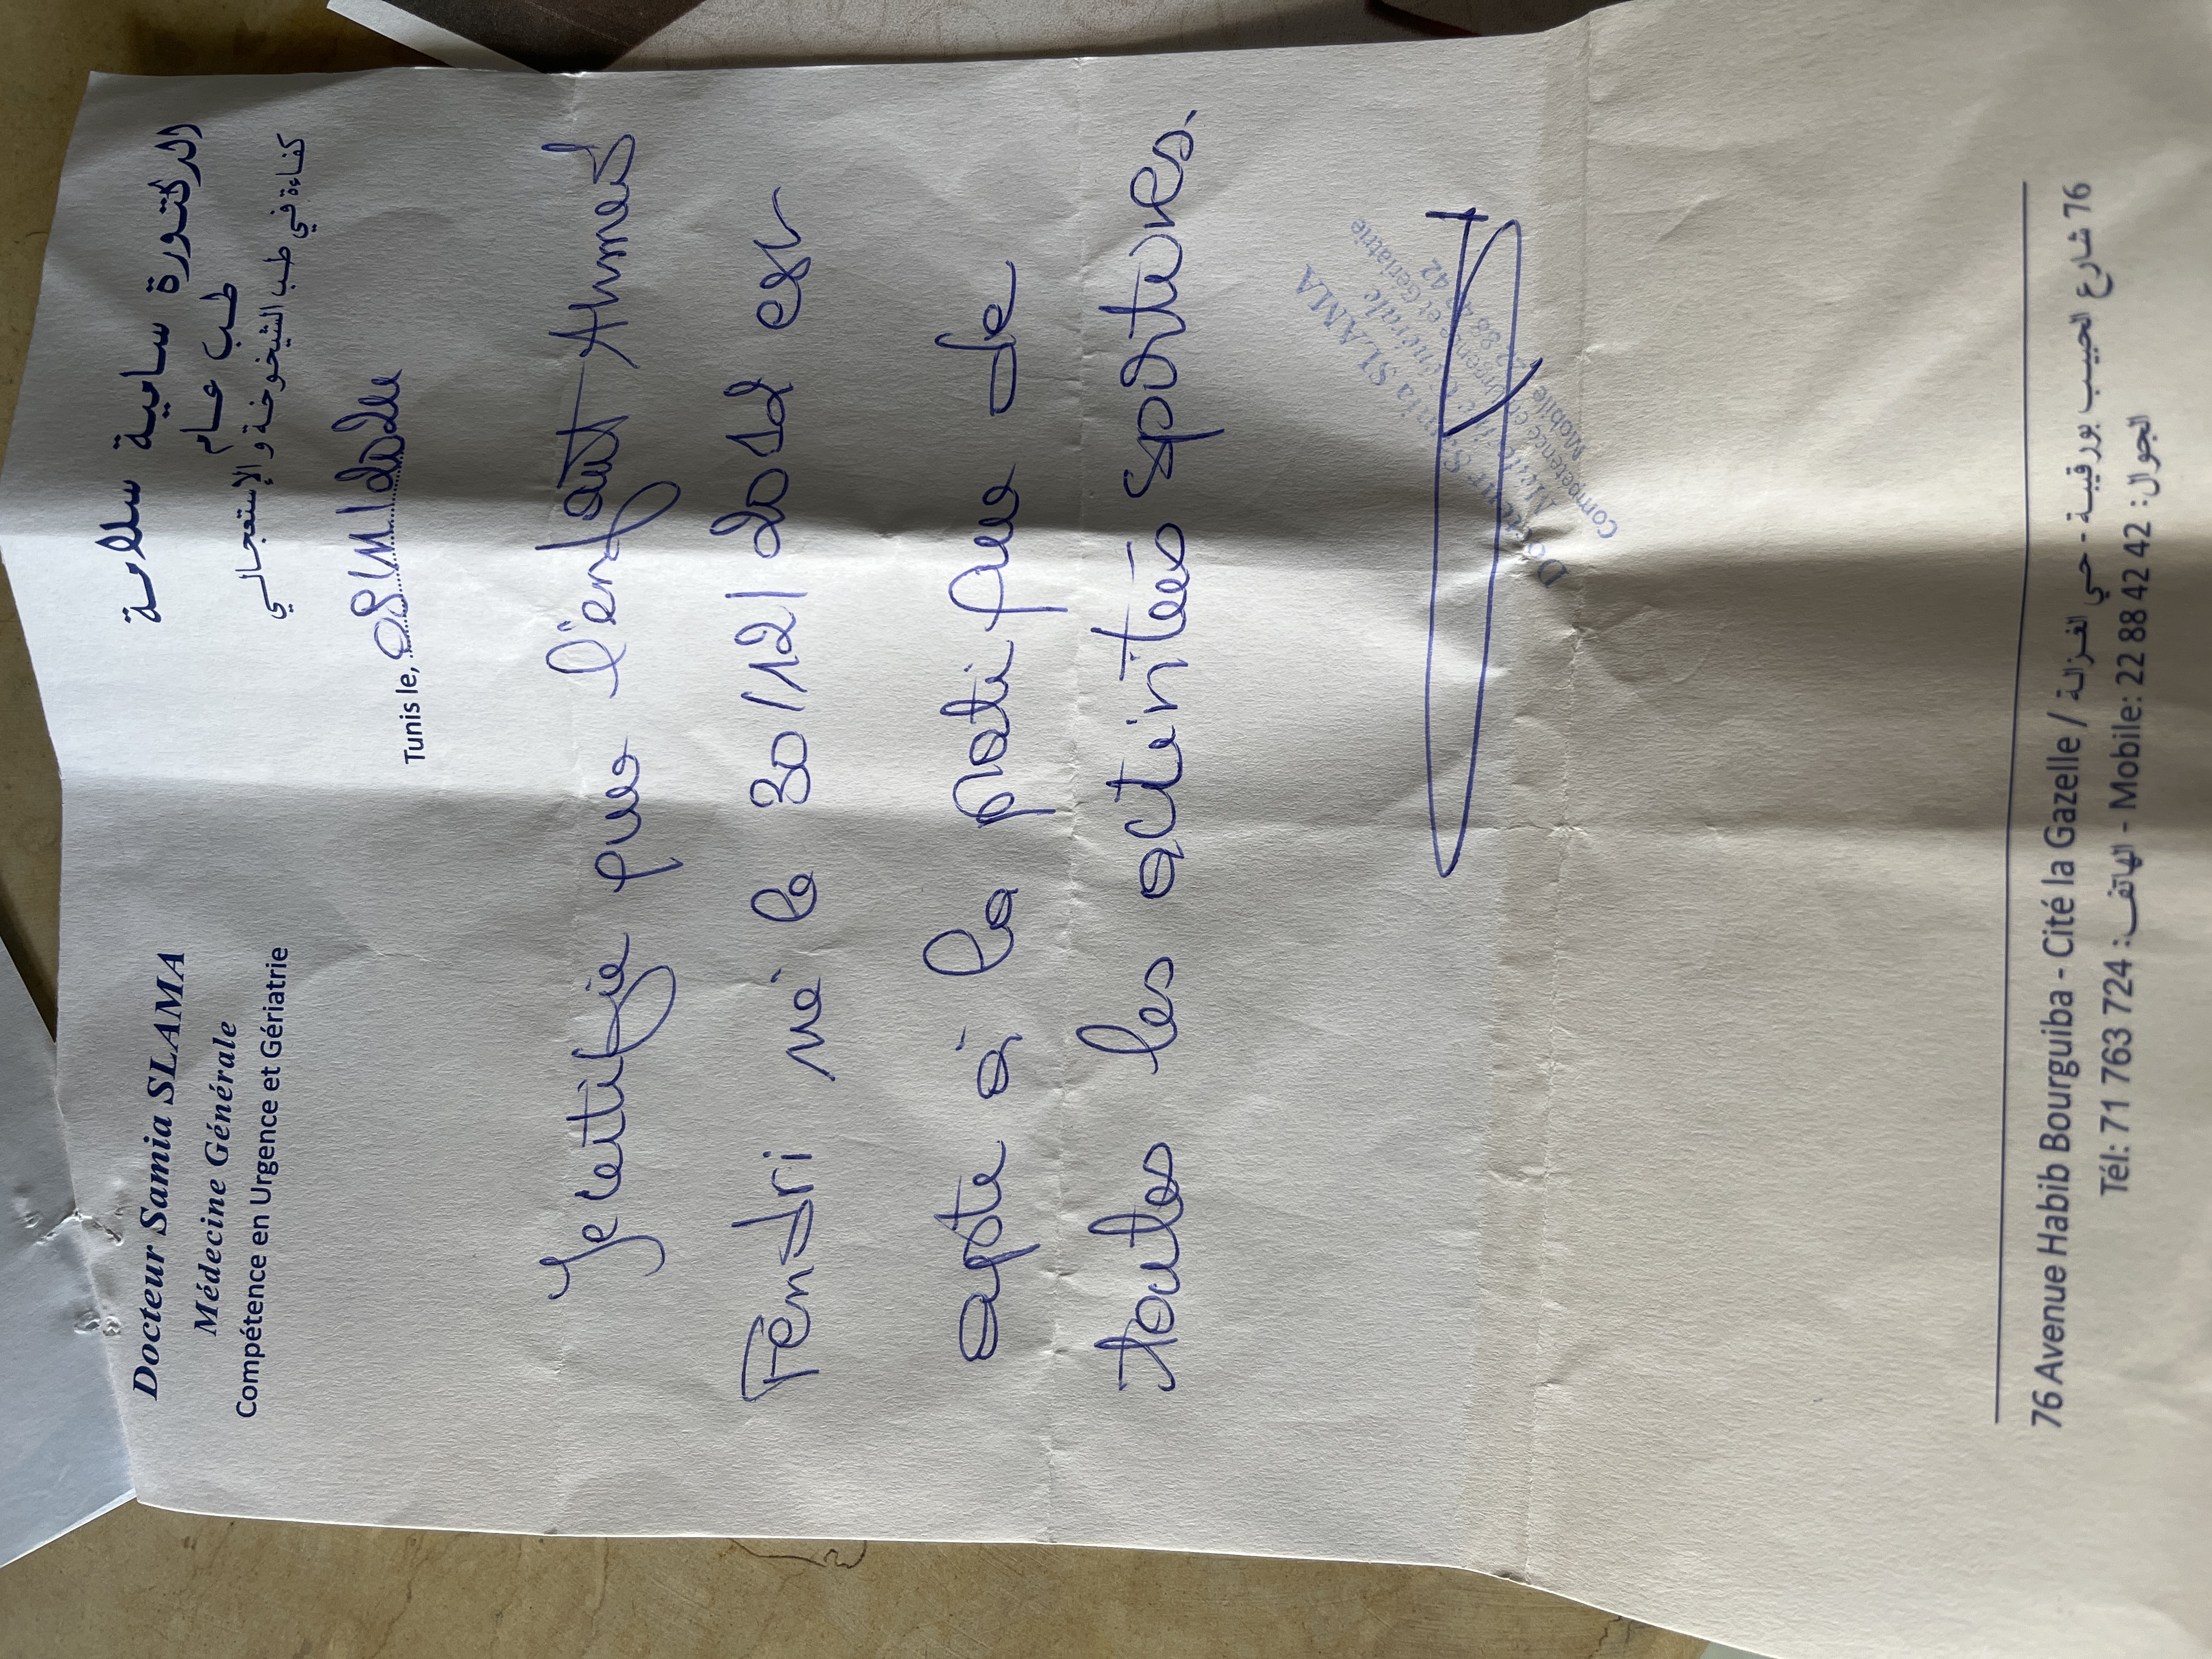 Docteur Samia SLAMA
Médecine Générale
Compétence en Urgence et Gériatrie
الدكتورة سامية سلامة
طب عام
كفاءة في طب الشيخوخة و الإستعجالي
Tunis le,
Je certifie que l'enfant Ahmed
Fendri né le 30/12/2012 est
apte à la pratique de
toutes les activités sportives.
Docteur Samia SLAMA
Médecine Générale
Compétence en Urgence et Gériatrie
Mobile: 22 88 42 42
76 Avenue Habib Bourguiba - Cité la Gazelle / 76 شارع الحبيب بورقيبة - حي الغزالة
Tél: 71 763 724 :الهاتف - Mobile: 22 88 42 42 :الجوال